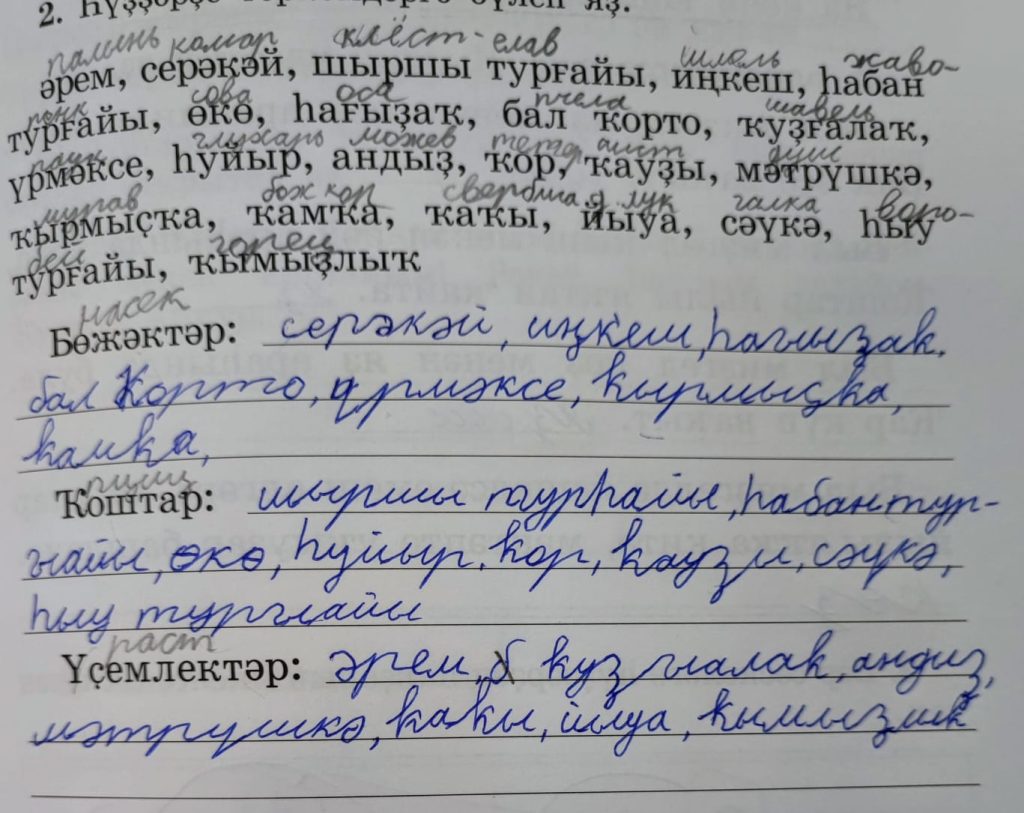 2. Һүҙҙәрҙе төркөмдәргә бүлеп яҙ.
полынь комар клёст-елав шмель жаво-
әрем, серәкәй, шыршы турғайы, иңкеш, һабан
сова оса пчела щавель
турғайы, өкө, һағыҙаҡ, бал ҡорто, ҡуҙғалаҡ,
паук глухарь можев тетер аист душ
үрмәксе, һуйыр, андыҙ, ҡор, ҡауҙы, мәтрүшкә,
мурав бож кор свербига д лук галка воро-
ҡырмыҫҡа, ҡамҡа, ҡаҡы, йыуа, сәүкә, һыу
бей горец
турғайы, ҡымыҙлыҡ
насек
Бөжәктәр: серәкәй, иңкеш, һағыҙак,
бал Корто, үрмәксе, ҡырмыҫҡа,
ҡамҡа,
птиц
Ҡоштар: шыршы турһайы, һабан тур-
ғайы, өкө, һуйыр, ҡор, ҡауҙы, сәүкә,
һыу турғайы
раст
Үҫемлектәр: әрем, куҙғалак, андыҙ,
мәтрүшкә, ҡаҡы, йыуа,